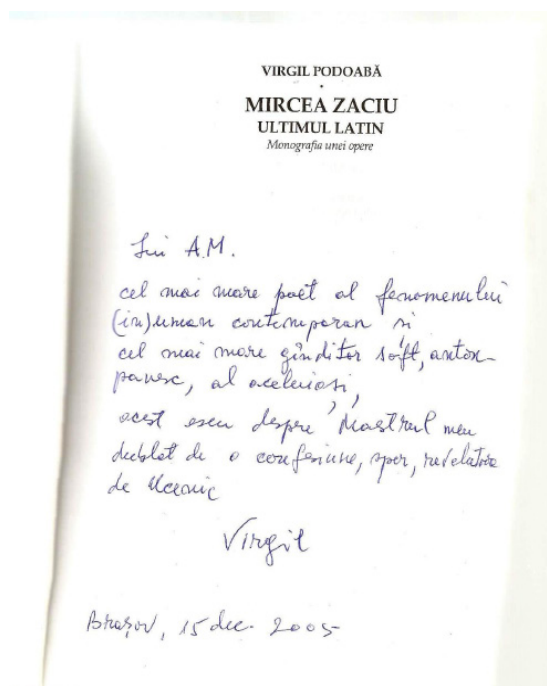 VIRGIL PODOABĂ
•
MIRCEA ZACIU
ULTIMUL LATIN
Monografia unei opere
Lui A.M.
cel mai mare poet al fenomenului
(in)uman contemporan și
cel mai mare gînditor soft, anton-
panesc, al aceluiași,
acest eseu despre Maestrul meu
dublat de o confesiune, sper, revelatoare
de
Virgil
Brașov, 15 dec. 2005